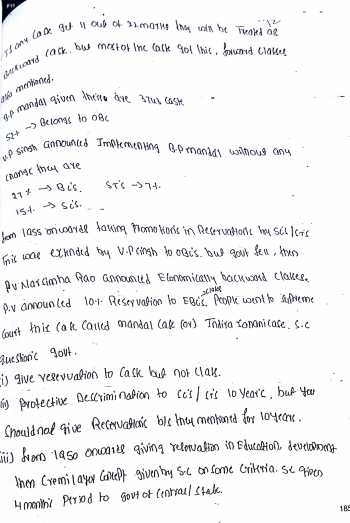 If any caste get 11 out of 22 marks they will be Treated as
Backward caste. but most of the caste got this, forward classes
also mentioned.
B.p mandal given there are 3743 caste
52% → Belongs to OBC
V.P singh announced Implementing B.p mandal without any
change they are
27% → BC's. ST's → 7%.
15% → SC's.
from 1955 onwards taking Promotions in Reservations by SCs/STs
This was extended by V.P singh to OBC's. but govt fell, then
P.V Narsimha Rao announced Economically backward classes.
P.V announced 10% Reservation to EBC's, People went to supreme
court this case called mandal case (or) Indira case. S.C
Question's govt.
i) give reservation to caste but not class.
ii) Protective Descrimination to SC's/ST's 10 Years, but you
should not give Reservations b/s they mentioned for 10 years.
iii) from 1950 onwards giving reservation in Education,
then Cremilayer given by S.C on some Criteria. SC given
4 months Period to govt of Central/State.
185